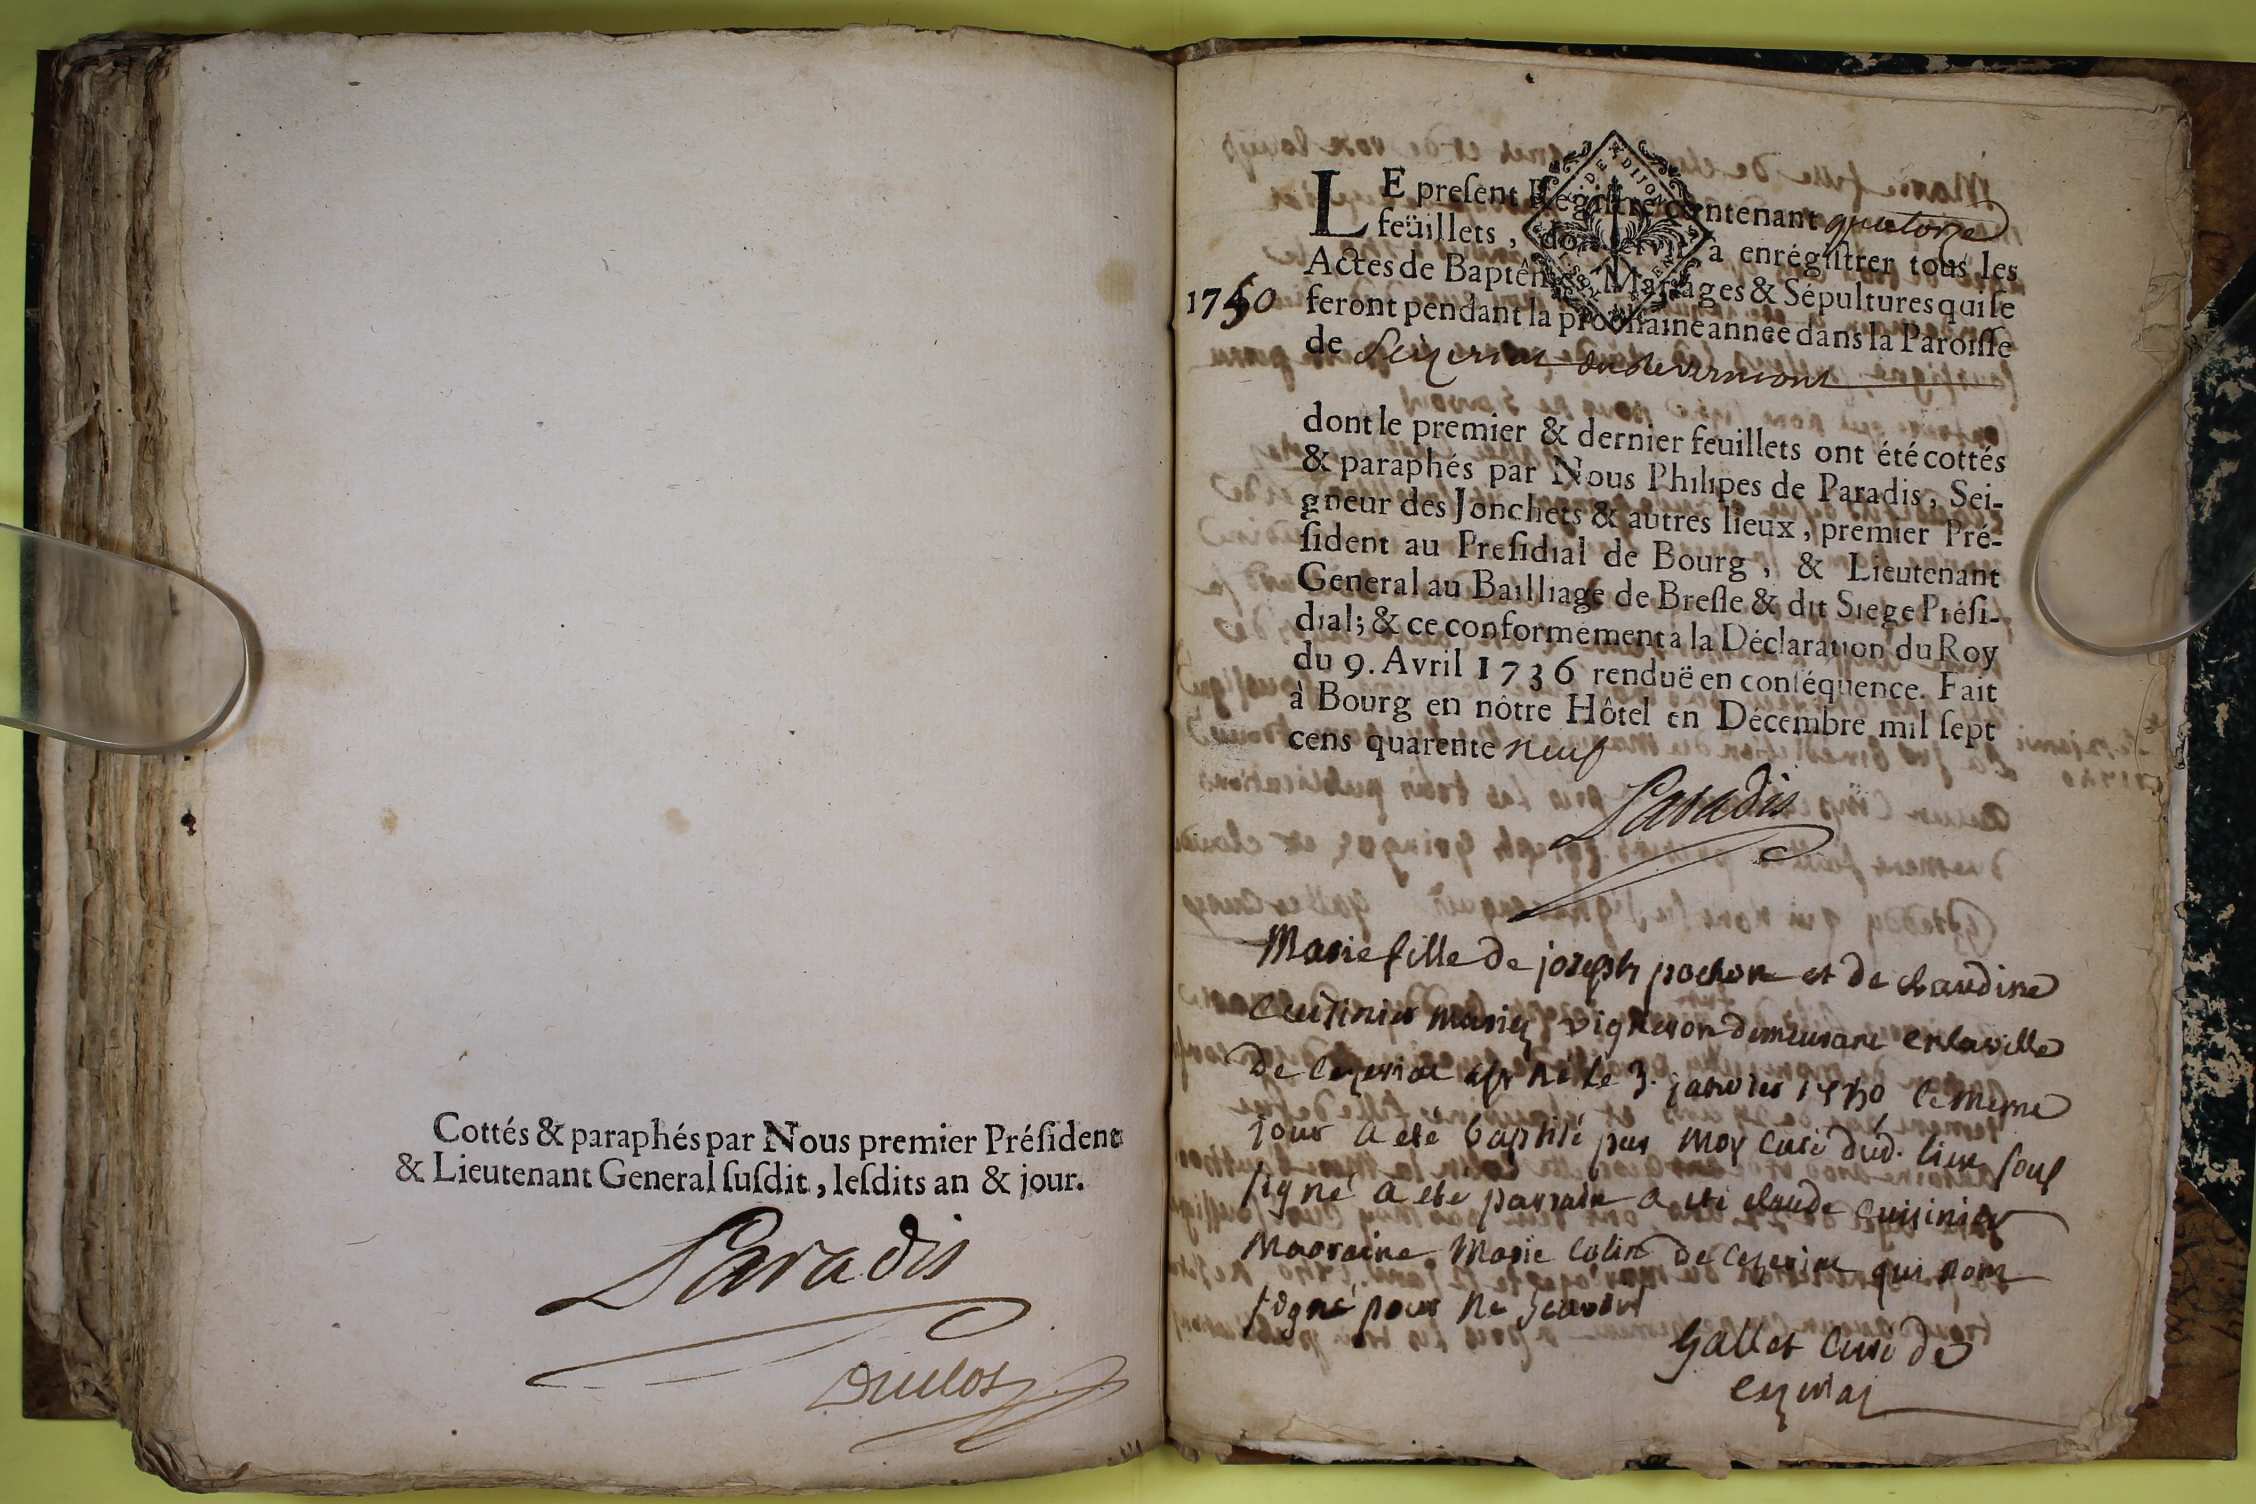 Cottés & paraphés par Nous premier Président
& Lieutenant General ſuſdit, leſdits an & jour.
Paradis
Duclos
DE DIJON
LE preſent Regiſtre contenant quatorze
feüillets, doit ſervir à enrégiſtrer tous les
Actes de Baptêmes, Mariages & Sépultures qui ſe
1750
feront pendant la prochaine année dans la Paroiſſe
de Seizeriat en Revermont
dont le premier & dernier feuillets ont été cottés
& paraphés par Nous Philipes de Paradis, Sei-
gneur des Jonchets & autres lieux, premier Pré-
ſident au Preſidial de Bourg, & Lieutenant
General au Bailliage de Breſſe & dit Siege Préſi-
dial; & ce conformément à la Déclaration du Roy
du 9. Avril 1736 renduë en conſéquence. Fait
à Bourg en nôtre Hôtel en Décembre mil ſept
cens quarente neuf
Paradis
Marie fille de joseph pochon et de claudine
cuisinier mariez vigneron demeurant en la ville
de cezeriat est né le 3. janvier 1750 le meme
jour a ete baptisé par moy curé dud. lieu sous
signé a ete parrain a ete claude cuisinier
maraine Marie Colin de cezeriat qui nont
signé pour ne scavoir
Gallet curé de
cezeriat